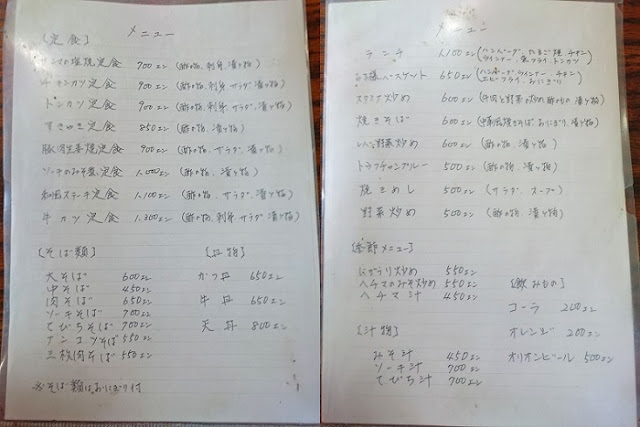 メニュー
〔定食〕
さんまの塩焼定食 700エン (酢の物、刺身、漬ケ物)
チキンカツ定食 900エン (酢の物、刺身、サラダ、漬ケ物)
トンカツ定食 900エン (酢の物、刺身、サラダ、漬ケ物)
すきやき定食 850エン (酢の物、漬ケ物)
豚肉生姜焼定食 900エン (酢の物、サラダ、漬ケ物)
ソーキのみそ煮定食 1.000エン (酢の物、漬ケ物)
和風ステーキ定食 1.100エン (酢の物、サラダ、漬ケ物)
牛カツ定食 1.200エン (酢の物、刺身、サラダ、漬ケ物)
〔そば類〕
大そば 600エン
中そば 450エン
肉そば 650エン
ソーキそば 700エン
てびちそば 700エン
ナンコツそば 550エン
三枚肉そば 550エン
※そば類はおにぎり付
〔丼物〕
カツ丼 650エン
牛丼 650エン
天丼 800エン
メニュー
ランチ 1.100エン (ハンバーグ、たまご焼、チキン
ウインナー、魚フライ、トンカツ)
お子様バスケット 650エン (ハンバーグ、ウインナー、チキン
エビフライ、おにぎり)
スタミナ炒め 600エン (牛肉と野菜の炒め、酢の物、漬ケ物)
焼きそば 600エン (中華風焼きそば、おにぎり、漬ケ物)
レバー野菜炒め 600エン (酢の物、漬ケ物)
トーフチャンプルー 500エン (酢の物、漬ケ物)
焼きめし 500エン (サラダ、スープ)
野菜炒め 500エン (酢の物、漬ケ物)
〔季節メニュー〕
にがうり炒め 550エン
ヘチマのみそ炒め 550エン
ヘチマ汁 450エン
〔汁物〕
みそ汁 450エン
ソーキ汁 700エン
てびち汁 700エン
〔飲みもの〕
コーラ 200エン
オレンジ 200エン
オリオンビール 500エン